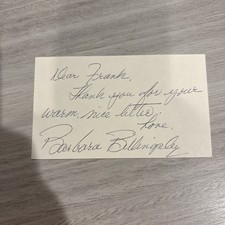 Dear Frank,
Thank you for your
warm, nice letter
Love,
Barbara Billingsley